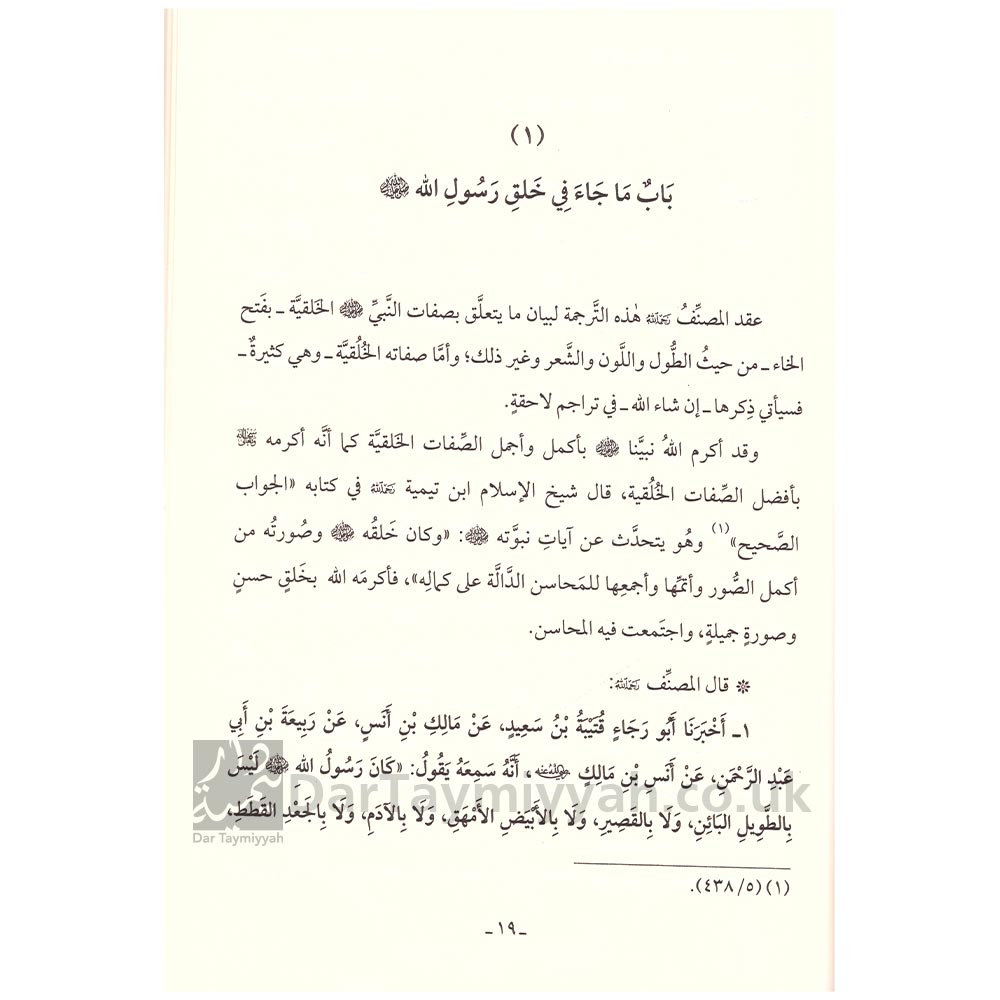 (١)
بَابٌ مَا جَاءَ فِي خَلقِ رَسُولِ الله ﷺ
عقد المصنِّفُ رَحِمَهُ اللهُ هٰذه التَّرجمة لبيان ما يتعلَّق بصفات النَّبيِّ ﷺ الخَلقيَّة ـ بفَتح
الخاء ـ من حيثُ الطُّول واللَّون والشَّعر وغير ذلك؛ وأمَّا صفاته الخُلُقيَّة ـ وهي كثيرةٌ ـ
فسيأتي ذِكرها ـ إن شاء الله ـ في تراجم لاحقةٍ.
وقد أكرم اللهُ نبيَّنا ﷺ بأكمل وأجمل الصِّفات الخَلقيَّة كما أنَّه أكرمه ﷺ
بأفضل الصِّفات الخُلُقية، قال شيخ الإسلام ابن تيمية رَحِمَهُ اللهُ في كتابه «الجواب
الصَّحيح»(١) وهُو يتحدَّث عن آياتِ نبوَّته ﷺ: «وكان خَلقُه ﷺ وصُورتُه من
أكمل الصُّور وأتمِّها وأجمعِها للمَحاسن الدَّالة على كمالِه»، فأكرمَه الله بخَلقٍ حسنٍ
وصورةٍ جميلةٍ، واجتَمعت فيه المحاسن.
❊ قال المصنِّف رَحِمَهُ اللهُ:
١ـ أَخْبَرَنَا أَبُو رَجَاءٍ قُتَيْبَةُ بْنُ سَعِيدٍ، عَنْ مَالِكِ بْنِ أَنَسٍ، عَنْ رَبِيعَةَ بْنِ أَبِي
عَبْدِ الرَّحْمَنِ، عَنْ أَنَسِ بْنِ مَالِكٍ رَضِيَ اللهُ عَنْهُ، أَنَّهُ سَمِعَهُ يَقُولُ: «كَانَ رَسُولُ الله ﷺ لَيْسَ
بِالطَّوِيلِ البَائِنِ، وَلَا بِالقَصِيرِ، وَلَا بِالأَبْيَضِ الأَمْهَقِ، وَلَا بِالآدَمِ، وَلَا بِالجَعْدِ القَطَطِ،
DarTaymiyyah.co.uk
Dar Taymiyyah
(١) (٥/ ٤٣٨).
ـ ١٩ ـ